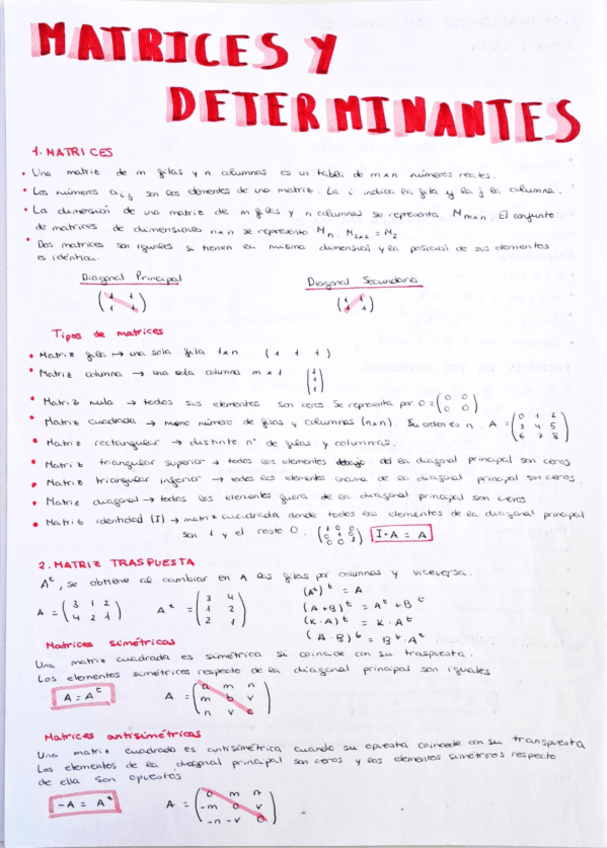 MATRICES Y
DETERMINANTES
1. MATRICES
• Una matriz de m filas y n columnas es un tabla de m×n números reales.
• Los números a i,j son los elementos de una matriz. La i indica la fila y la j la columna.
• La dimensión de una matriz de m filas y n columnas se representa Mm×n. El conjunto
de matrices de dimensiones n×n se representa Mn. M2×2 = M2
• Dos matrices son iguales si tienen la misma dimensión y la posición de sus elementos
es idéntica.
Diagonal Principal Diagonal Secundaria
(1 1
1 1) (1 1
1 1)
Tipos de matrices
• Matriz fila → una sola fila 1×n (1 1 1)
• Matriz columna → una sola columna m×1 (1
1
1)
• Matriz nula → todos sus elementos son ceros. Se representa por O = (0 0
0 0)
• Matriz cuadrada → mismo número de filas y columnas (n×n). Su orden es n. A = (0 1 2
3 4 5
6 7 8)
• Matriz rectangular → distinto nº de filas y columnas.
• Matriz triangular superior → todos los elementos debajo de la diagonal principal son ceros
• Matriz triangular inferior → todos los elementos encima de la diagonal principal son ceros.
• Matriz diagonal → todos los elementos fuera de la diagonal principal son ceros
• Matriz identidad (I) → matriz cuadrada donde todos los elementos de la diagonal principal
son 1 y el resto 0. (1 0 0
0 1 0
0 0 1) I·A = A
2. MATRIZ TRASPUESTA
Aᵗ, se obtiene al cambiar en A las filas por columnas y viceversa.
A = (3 1 2
4 2 1) Aᵗ = (3 4
1 2
2 1)
(Aᵗ)ᵗ = A
(A+B)ᵗ = Aᵗ + Bᵗ
(K·A)ᵗ = K·Aᵗ
(A·B)ᵗ = Bᵗ·Aᵗ
Matrices simétricas
Una matriz cuadrada es simétrica si coincide con su traspuesta.
Los elementos simétricos respecto de la diagonal principal son iguales
A = Aᵗ A = (a m n
m b v
n v c)
Matrices antisimétricas
Una matriz cuadrada es antisimétrica cuando su opuesta coincide con su transpuesta
Los elementos de la diagonal principal son ceros y los elementos simétricos respecto
de ella son opuestos
-A = Aᵗ A = (0 m n
-m 0 v
-n -v 0)